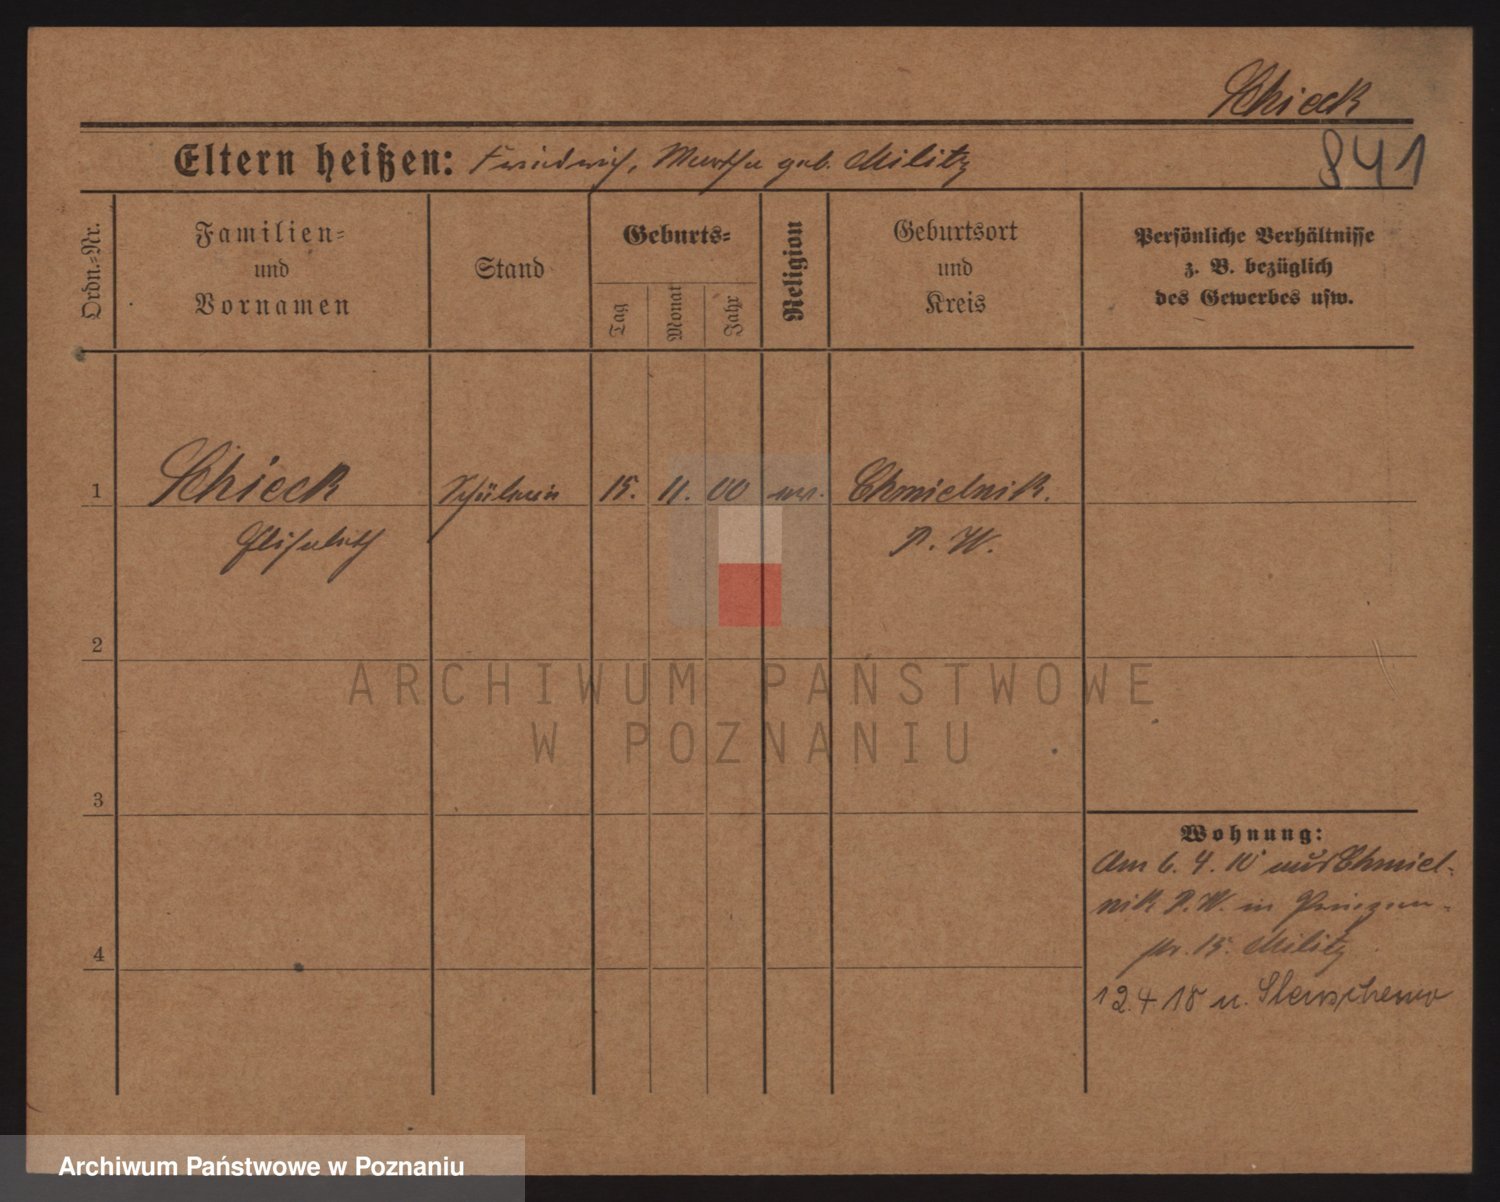 Schieck
841
Eltern heißen: Friedrich, Martha geb. Militz
Ordn.-Nr.
Familien-
und
Vornamen
Stand
Geburts-
Tag
Monat
Jahr
Religion
Geburtsort
und
Kreis
Persönliche Verhältnisse
z. B. bezüglich
des Gewerbes usw.
1
Schieck
Elisabeth
Schülerin
15.
11.
00
ev.
Chmielnik.
P. W.
2
3
4
Wohnung:
Am 6. 4. 10 aus Chmiel-
nik P. W. in Prinzen-
str. 15. Militz
12.4 18 n.
ARCHIWUM PAŃSTWOWE
W POZNANIU
Archiwum Państwowe w Poznaniu